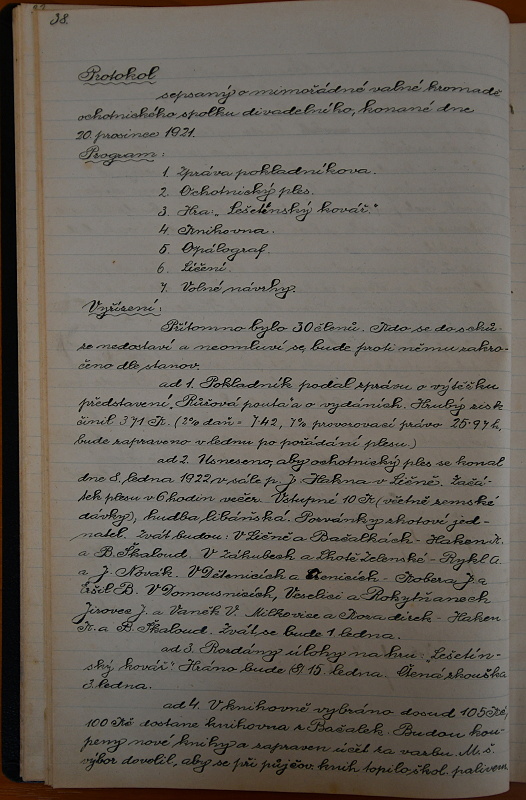 38.
Protokol
sepsaný o mimořádné valné hromadě
ochotnického spolku divadelního, konané dne
20. prosince 1921.
Program:
1. Zpráva pokladníkova.
2. Ochotnický ples.
3. Hra: „Lešetínský kovář."
4. Knihovna.
5. Opálograf.
6. Líčení.
7. Volné návrhy.
Vyřízení:
Přítomno bylo 30 členů. Kdo se do schů-
ze nedostaví a neomluví se, bude proti němu zakro-
čeno dle stanov.
ad 1. Pokladník podal zprávu o výtěžku
představení „Růžová pouta" a o vydáních. Hrubý zisk
činil 371 K. (2% daň = 7.42, 7% provozovací právo 25.97 h,
bude zapraveno v lednu po pořádání plesu.)
ad 2. Usneseno, aby ochotnický ples se konal
dne 8. ledna 1922 v sále p. J. Hakna v Ličně. Začá-
tek plesu v 6 hodin večer. Vstupné 10 K (včetně zemské
dávky), hudba libáňská. Pozvánky zhotoví jed-
natel. Zvát budou: V Ličně a Bačalkách - Haken K.
a B. Škaloud. V Záhubech a Lhotě Zelenské - Rykl A.
a J. Novák. V Dětenicích a Osenicích - Kobera J. a
Eršil B. V Domousnicích, Veselici a Rokytňanech
Jirovec J. a Vaněk V. Milkovice a Kovač direk - Haken
K. a B. Škaloud. Zvát se bude 1. ledna.
ad 3. Rozdány úlohy na hru: „Lešetín-
ský kovář." Hráno bude 15. ledna. Čtená zkouška
3. ledna.
ad 4. V knihovně vybráno dosud 105 Kč,
100 Kč dostane knihovna z Bačalek. Budou kou-
peny nové knihy a zapraven účet za vazbu. M. š.
výbor dovolil, aby se při půjčov. knih topilo škol. palivem.